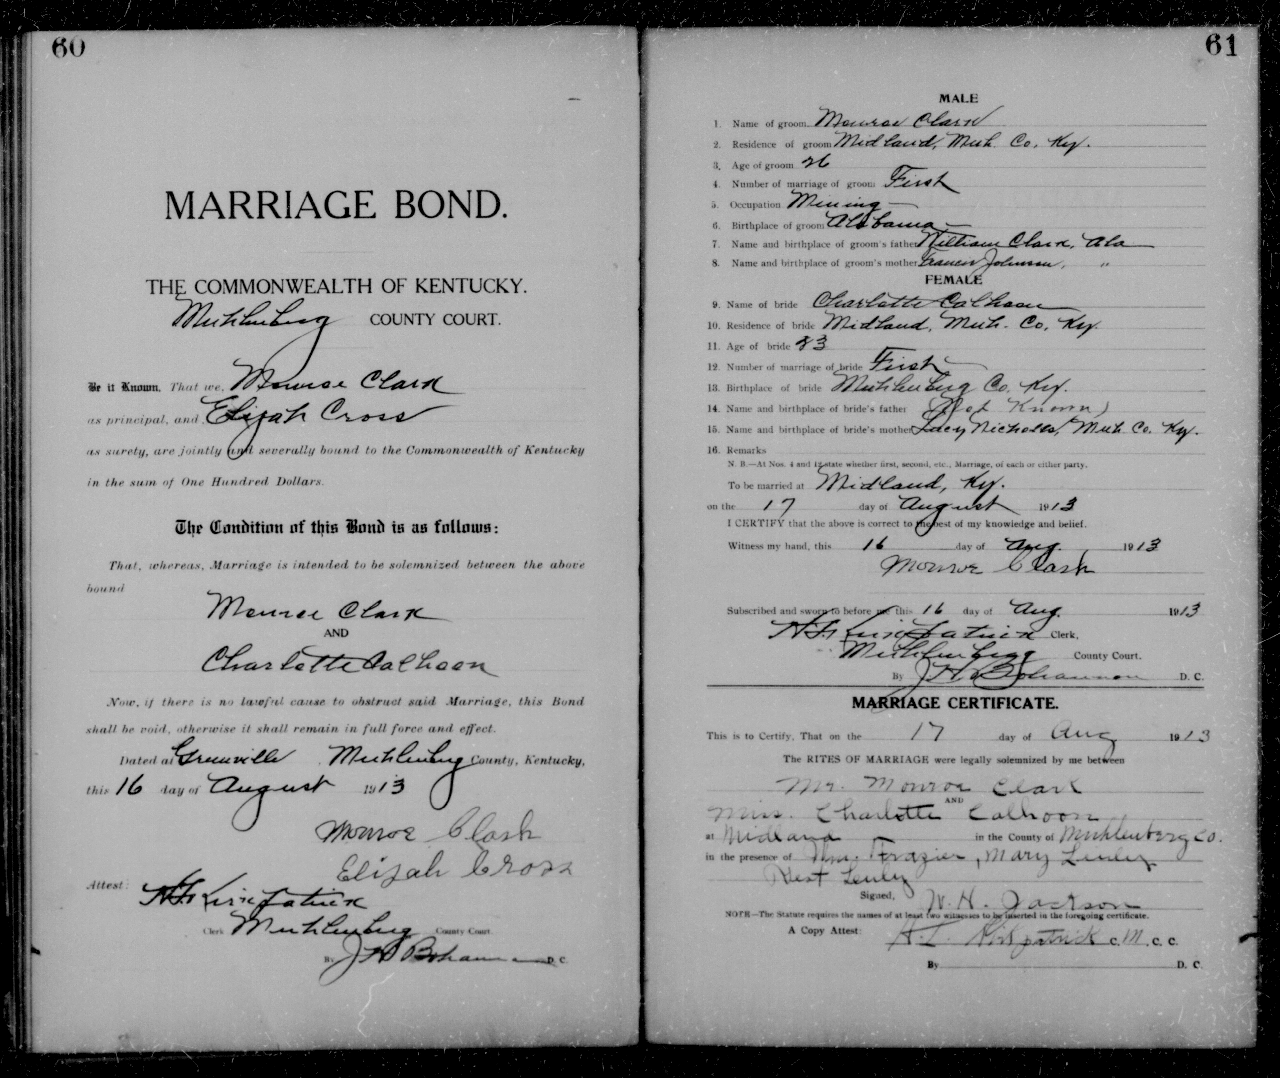 60
MARRIAGE BOND.
THE COMMONWEALTH OF KENTUCKY.
Muhlenberg COUNTY COURT.
Be it Known, That we, Monroe Clark
as principal, and Elijah Cross
as surety, are jointly and severally bound to the Commonwealth of Kentucky
in the sum of One Hundred Dollars.
The Condition of this Bond is as follows:
That, whereas, Marriage is intended to be solemnized between the above
bound
Monroe Clark
AND
Charlotte Calhoon
Now, if there is no lawful cause to obstruct said Marriage, this Bond
shall be void, otherwise it shall remain in full force and effect.
Dated at Greenville Muhlenberg County, Kentucky,
this 16 day of August 1913
Monroe Clark
Elijah Cross
Attest:
Kirkpatrick
Clerk Muhlenberg County Court
By J H Bohannon D. C.
61
MALE
1. Name of groom Monroe Clark
2. Residence of groom Midland, Muh. Co. Ky.
3. Age of groom 26
4. Number of marriage of groom First
5. Occupation Mining
6. Birthplace of groom Alabama
7. Name and birthplace of groom's father William Clark, Ala
8. Name and birthplace of groom's mother Frances Johnson, "
FEMALE
9. Name of bride Charlotte Calhoon
10. Residence of bride Midland, Muh. Co, Ky.
11. Age of bride 23
12. Number of marriage of bride First
13. Birthplace of bride Muhlenberg Co. Ky.
14. Name and birthplace of bride's father (Not Known)
15. Name and birthplace of bride's mother Lucy Nicholls, Muh. Co. Ky.
16. Remarks
N. B.—At Nos. 4 and 12 state whether first, second, etc., Marriage, of each or either party.
To be married at Midland, Ky.
on the 17 day of August 1913
I CERTIFY that the above is correct to the best of my knowledge and belief.
Witness my hand, this 16 day of Aug. 1913
Monroe Clark
Subscribed and sworn to before me this 16 day of Aug. 1913
Kirkpatrick Clerk,
Muhlenberg County Court.
By J H Bohannon D. C.
MARRIAGE CERTIFICATE.
This is to Certify, That on the 17 day of Aug 1913
The RITES OF MARRIAGE were legally solemnized by me between
Mr. Monroe Clark
AND
Miss. Charlotte Calhoon
at Midland in the County of Muhlenberg Co.
in the presence of Wm. Frazier, Mary Lenley
Lenley
Signed, W. H. Jackson
NOTE—The Statute requires the names of at least two witnesses to be inserted in the foregoing certificate.
A Copy Attest: Kirkpatrick C. M. C. C.
By D. C.